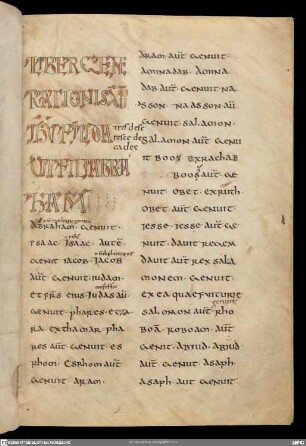 LIBER GEN
RATIONIS XPI
IHU FILII DA
UIT FILII ABRA
HAM
ABRAHAM · GENUIT ·
ISAAC · ISAAC · AUTE
GENIT IACOB · IACOB
AUT GENUIT · IUDAM ·
ET FRS EIUS · IUDAS AU
GENUIT · PHARES · ET ZA
RA · EX THAMAR PHA
RES AUT · GENUIT · ES
RHOM · ESRHOM AUT
GENUIT ARAM ·
ARAM · AUT GENUIT ·
AMINADAB · AMINA
DAB AUT · GENUIT NA
ASSON · NAASSON · AU
GENUIT · SALAMON ·
SALAMON AUT · GENU
IT BOOS · EX RACHAB
BOOS AUT · GE
NUIT · OBET · EX RUTH
OBET AUT · GENUIT ·
IESSE · IESSE AUT · GE
NUIT · DAUIT REGEM
DAUIT AUT REX SALA
MONEM · GENUIT ·
EX EA QUAE FUIT URIE
genuit
SALOMON AUT · RHO
BOA · ROBOAM · AUT
GENIT · ABIUD · ABIUD
AUT · GENUIT · ASAPH ·
ASAPH · AUT GENUIT